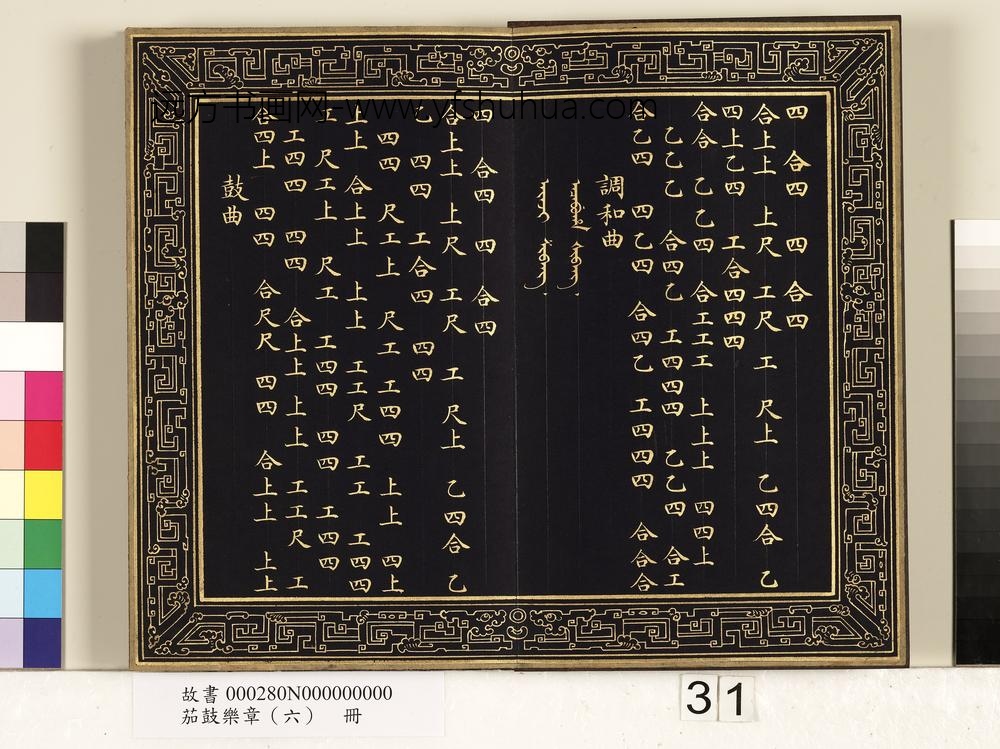 四 合四 四 合四
合上上 上尺 工尺 工 尺上 乙四合 乙
四上乙四 工合四四四
合合 乙乙四 合工工工 上上上 四四上
乙乙乙 合四乙 工四四四 乙乙四 合工
合乙四 四乙四 合四乙 工四四四 合合合
調和曲
四 合四 四 合四
合上上 上尺 工尺 工 尺上 乙四合 乙
乙 四四 工合四 四四
四四 尺工上 尺工 工四四 上上 四上
上上 合上上 上上 工工尺 工工 工四四
尺工上 尺工 工四四 四四 工四四
工四四 四四 合上上 上上 工工尺 工
合四上 四四 合尺尺 四四 合上上 上上
鼓曲
方书画网-www.yfshuhua.com
故書 000280N000000000
茄鼓樂章（六） 冊
31